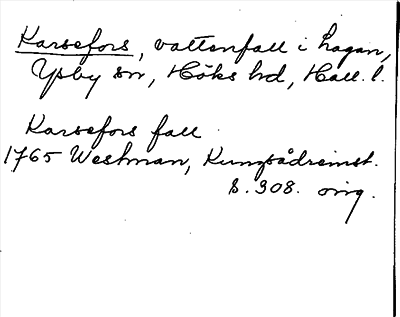 Karsefors, vattenfall i Lagan,
Ysby sn, Höks hd, Hall. l.
Karsefors fall
1765 Westman, Kungsådreinst.
S. 308. orig.